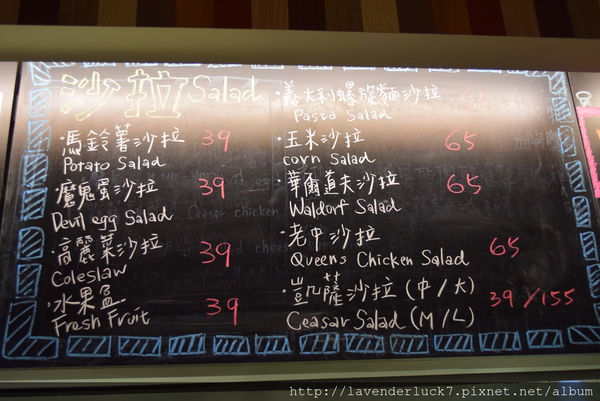 沙拉 Salad
·馬鈴薯沙拉 39
Potato Salad
·魔鬼蛋沙拉 39
Devil egg Salad
·高麗菜沙拉 39
Coleslaw
·水果盒 39
Fresh Fruit
·義大利螺旋麵沙拉 65
Pasta Salad
·玉米沙拉 65
corn Salad
·華爾道夫沙拉 65
Waldorf Salad
·老中沙拉
Queens Chicken Salad 65
·凱薩沙拉(中/大) 39/155
Ceasar Salad (M/L)
http://lavenderluck7.pixnet.net/album